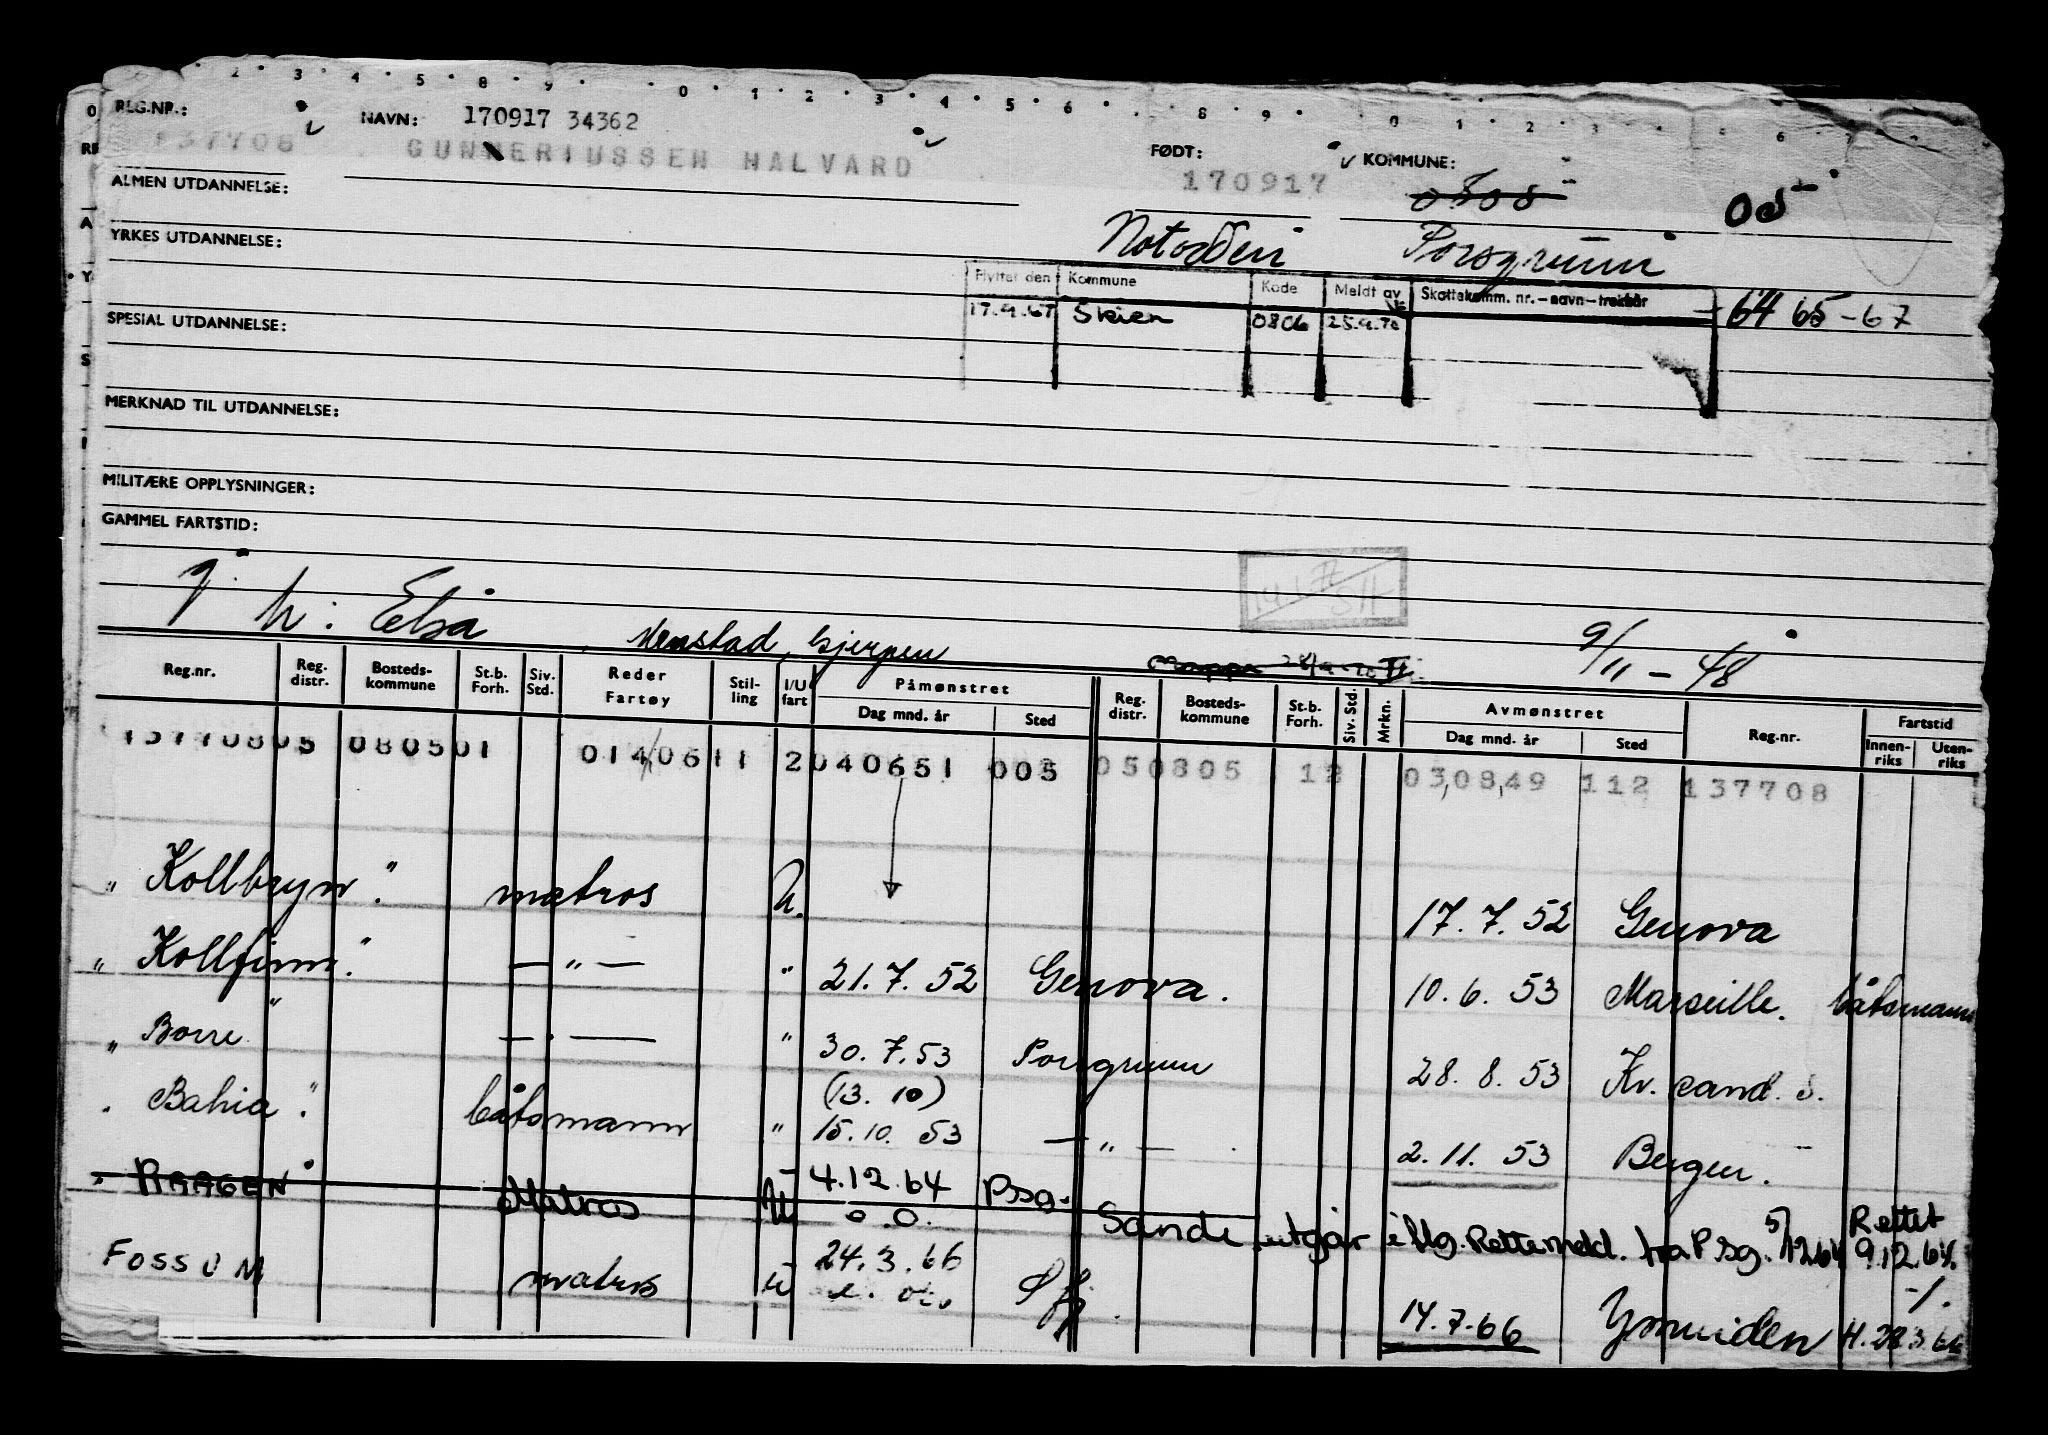 2 3 4 5 8 9 0 1 2 3 4 5 6 8 9 0 1 2 3 6 7
REG.NR.: NAVN: 170917 34362
137708 GUNNERIUSSEN HALVARD FØDT: 170917 KOMMUNE: 0805
ALMEN UTDANNELSE: 05
Notodden Porsgrunn
YRKES UTDANNELSE:
Flyttet den Kommune Kode Meldt av Skattekomm. nr. – navn – trekkår 64 65 – 67
17.9.67 Skien 0806 25.9.70
SPESIAL UTDANNELSE:
MERKNAD TIL UTDANNELSE:
MILITÆRE OPPLYSNINGER:
GAMMEL FARTSTID:
h: Elsa, Menstad, Gjerpen 9/11 – 48
Reg.nr. Reg. distr. Bosteds-kommune St.b. Forh. Siv. Std. Reder Fartøy Stil-ling I/U fart Påmønstret Dag mnd. år Sted Reg. distr. Bosteds-kommune St.b. Forh. Siv. Std. Mrkn. Avmønstret Dag mnd. år Sted Reg.nr. Fartstid Innen-riks Uten-riks
13770805 080501 0140611 2040651 005 050805 12 03,08,49 112 137708
" Kollbryn " matros U. 17. 7. 52 Genova
" Kollfinn. " — " — " 21. 7. 52 Genova. 10. 6. 53 Marseille. båtsmann
" Borre " — " — " 30. 7. 53 Porsgrunn 28. 8. 53 Kr. sand. S.
(13. 10)
" Bahia " båtsmann " 15. 10. 53 — " — 2. 11. 53 Bergen.
Matros U 4.12.64 Psg. Sande utgår i flg. Rettemeld. fra Psg. 5/12 64 Rettet 9.12.64.
o.o.
FOSSUM matros U 24. 3. 66 Sfj. 14.7.66 Ymuiden H. 28.3.66